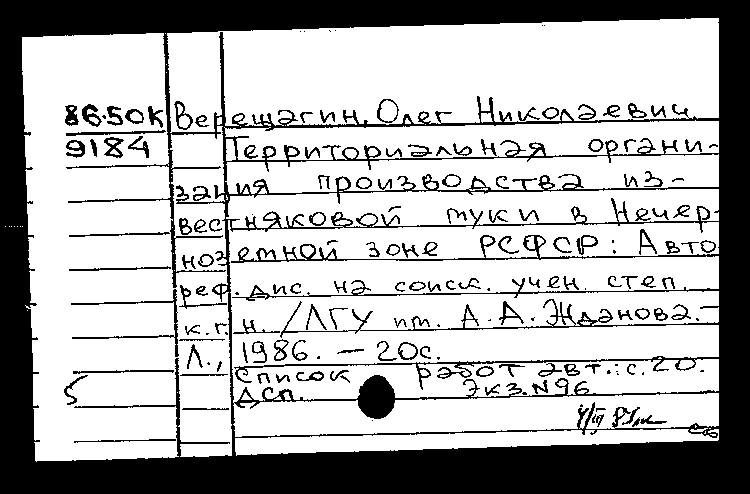 86.50К Верещагин, Олег Николаевич.
9184 Территориальная органи-
зация производства из-
вестняковой муки в Нечер-
ноземной зоне РСФСР: Авто
реф. дис. на соиск. учен. степ.
к.г.н. /ЛГУ им. А.А. Жданова.-
Л., 1986. — 20с.
Список работ авт.: с. 20.
ДСП. Экз. №96
5